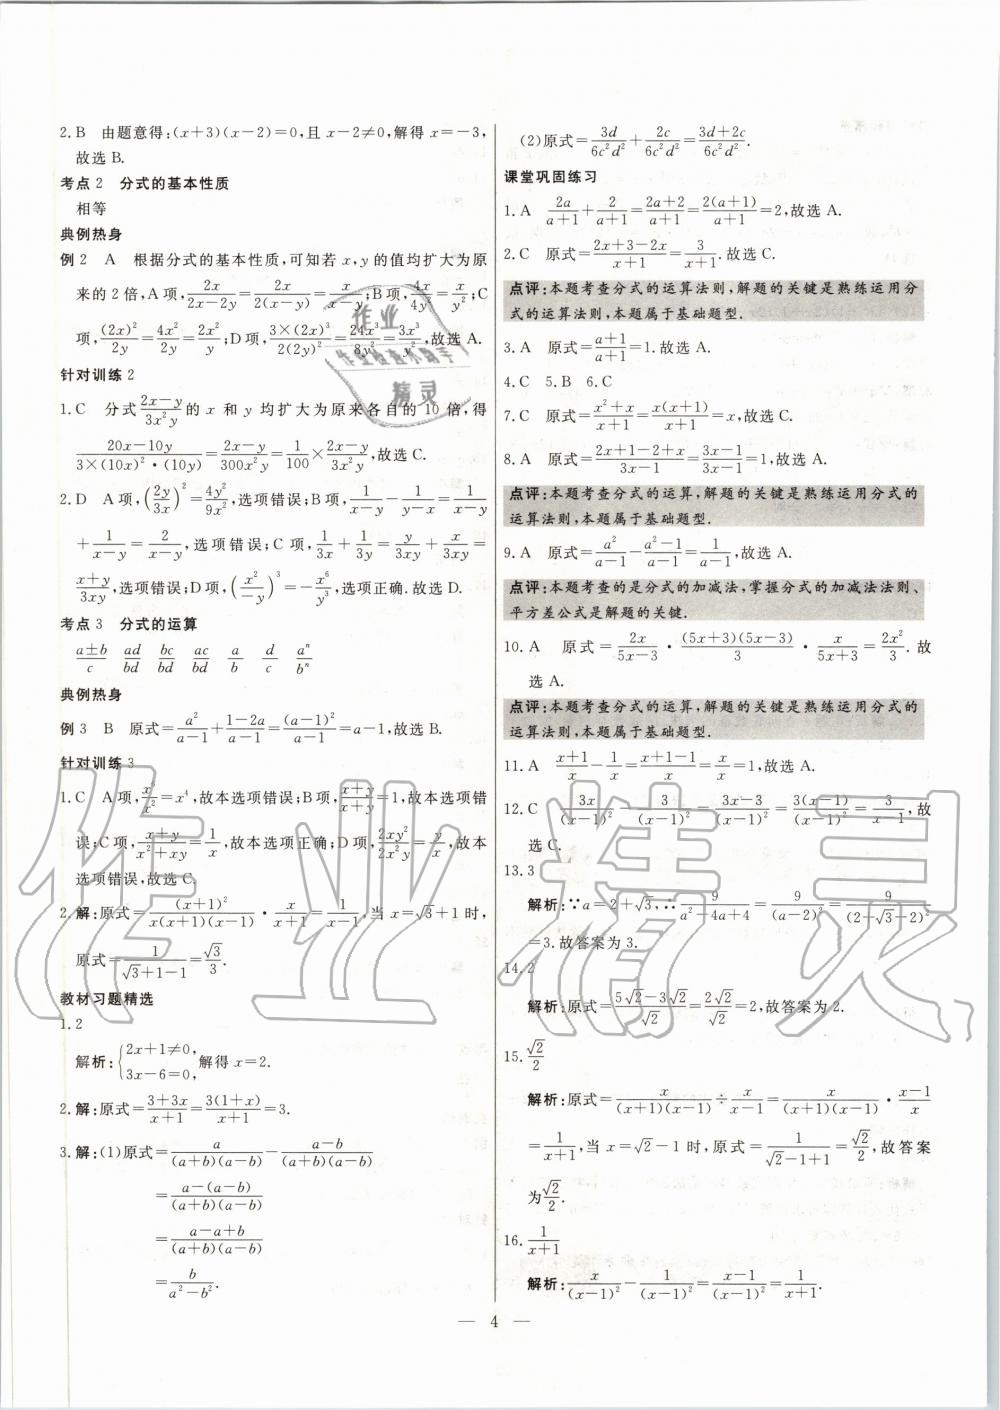 2.B 由题意得:(x+3)(x-2)=0,且 x-2≠0,解得 x=-3,
故选 B.
考点 2 分式的基本性质
相等
典例热身
例 2 A 根据分式的基本性质,可知若 x,y 的值均扩大为原
来的 2 倍,A 项,2x/(2x-2y)=2x/(2(x-y))=x/(x-y);B项,4x/4y=x/y²;C
项,(2x)²/2y=4x²/2y=2x²/y;D 项,3×(2x)³/2(2y)²=24x³/8y²=3x³/y²,故选 A.
针对训练 2
1.C 分式(2x-y)/(3x²y)的 x 和 y 均扩大为原来各自的 10 倍,得
(20x-10y)/(3×(10x)²·(10y))=(2x-y)/(300x²y)=1/100×(2x-y)/(3x²y),故选 C.
2.D A 项,(2y/3x)²=4y²/9x²,选项错误;B项,1/(x-y)-1/(y-x)=1/(x-y)
+1/(x-y)=2/(x-y),选项错误;C 项,1/3x+1/3y=y/3xy+x/3xy=
(x+y)/3xy,选项错误;D项,(x²/-y)³=-x⁶/y³,选项正确.故选 D.
考点 3 分式的运算
(a±b)/c ad/bd bc/bd ac/bd a/b d/c aⁿ/bⁿ
典例热身
例 3 B 原式=a²/(a-1)+(1-2a)/(a-1)=(a-1)²/(a-1)=a-1,故选 B.
针对训练 3
1.C A 项,x⁶/x²=x⁴,故本选项错误;B 项,(x+y)/(x+y)=1,故本选项错
误;C项,(x+y)/(x²+xy)=1/x,故本选项正确;D项,2xy²/2x²y=y/x,故本
选项错误,故选 C.
2.解:原式=(x+1)²/(x(x+1)(x-1))·x/(x+1)=1/(x-1),当 x=√3+1时,
原式=1/(√3+1-1)=√3/3.
教材习题精选
1.2
解析:{2x+1≠0, 3x-6=0, 解得 x=2.
2.解:原式=(3+3x)/(x+1)=3(1+x)/(x+1)=3.
3.解:(1)原式=a/((a+b)(a-b))-(a-b)/((a+b)(a-b))
=(a-(a-b))/((a+b)(a-b))
=(a-a+b)/((a+b)(a-b))
=b/(a²-b²).
(2)原式=3d/6c²d²+2c/6c²d²=(3d+2c)/6c²d².
课堂巩固练习
1.A 2a/(a+1)+2/(a+1)=(2a+2)/(a+1)=2(a+1)/(a+1)=2,故选 A.
2.C 原式=(2x+3-2x)/(x+1)=3/(x+1).故选 C.
点评:本题考查分式的运算法则,解题的关键是熟练运用分
式的运算法则,本题属于基础题型.
3.A 原式=(a+1)/(a+1)=1.故选 A.
4.C 5.B 6.C
7.C 原式=(x²+x)/(x+1)=x(x+1)/(x+1)=x,故选 C.
8.A 原式=(2x+1-2+x)/(3x-1)=(3x-1)/(3x-1)=1,故选 A.
点评:本题考查分式的运算,解题的关键是熟练运用分式的
运算法则,本题属于基础题型.
9.A 原式=a²/(a-1)-(a²-1)/(a-1)=1/(a-1),故选 A.
点评:本题考查的是分式的加减法,掌握分式的加减法法则、
平方差公式是解题的关键.
10.A 原式=2x/(5x-3)·(5x+3)(5x-3)/3·x/(5x+3)=2x²/3.故
选 A.
点评:本题考查分式的运算,解题的关键是熟练运用分式的
运算法则,本题属于基础题型.
11.A (x+1)/x-1/x=(x+1-1)/x=x/x=1,故选 A.
12.C 3x/(x-1)²-3/(x-1)²=(3x-3)/(x-1)²=3(x-1)/(x-1)²=3/(x-1),故
选 C.
13.3
解析:∵a=2+√3,∴9/(a²-4a+4)=9/(a-2)²=9/(2+√3-2)²
=3.故答案为 3.
14.2
解析:原式=(5√2-3√2)/√2=2√2/√2=2,故答案为 2.
15.√2/2
解析:原式=x/((x+1)(x-1))÷x/(x-1)=x/((x+1)(x-1))·(x-1)/x
=1/(x+1),当 x=√2-1 时,原式=1/(√2-1+1)=√2/2,故答案
为√2/2.
16.1/(x+1)
解析:x/(x-1)²-1/(x-1)²=(x-1)/(x-1)²=1/(x+1).
— 4 —
作业
作业检查小助手
精灵
作业精灵